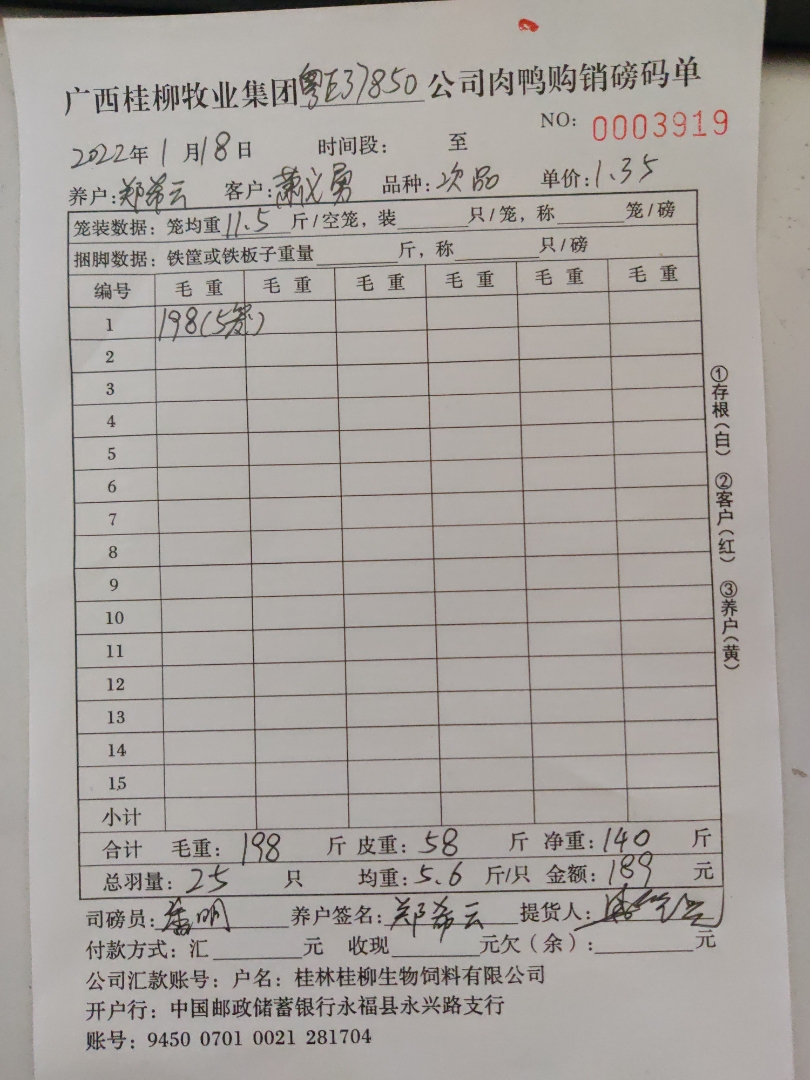 广西桂柳牧业集团粤E37850公司肉鸭购销磅码单
NO: 0003919
2022年1月18日 时间段: 至
养户:郑希云 客户:萧义勇 品种:次品 单价:1.35
笼装数据: 笼均重11.5斤/空笼, 装 只/笼, 称 笼/磅
捆脚数据: 铁筐或铁板子重量 斤, 称 只/磅
编号 毛重 毛重 毛重 毛重 毛重 毛重
1 198(5笼)
2
3
4
5
6
7
8
9
10
11
12
13
14
15
小计
合计 毛重: 198 斤 皮重: 58 斤 净重: 140 斤
总羽量: 25 只 均重: 5.6 斤/只 金额: 189 元
司磅员: 养户签名: 郑希云 提货人:
付款方式: 汇 元 收现 元欠(余): 元
公司汇款账号: 户名: 桂林桂柳生物饲料有限公司
开户行: 中国邮政储蓄银行永福县永兴路支行
账号: 9450 0701 0021 281704
①存根(白) ②客户(红) ③养户(黄)